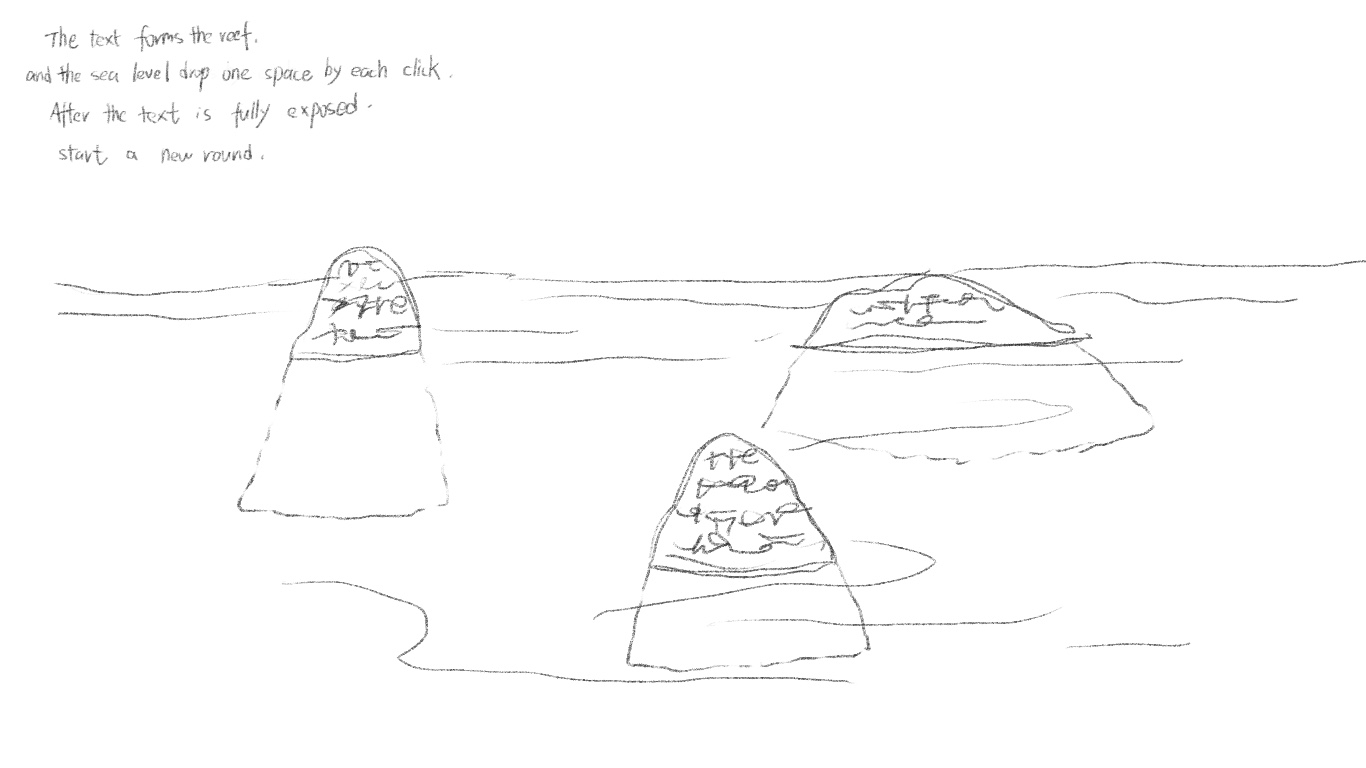 The text forms the reef.
and the sea level drop one space by each click.
After the text is fully exposed.
start a new round.